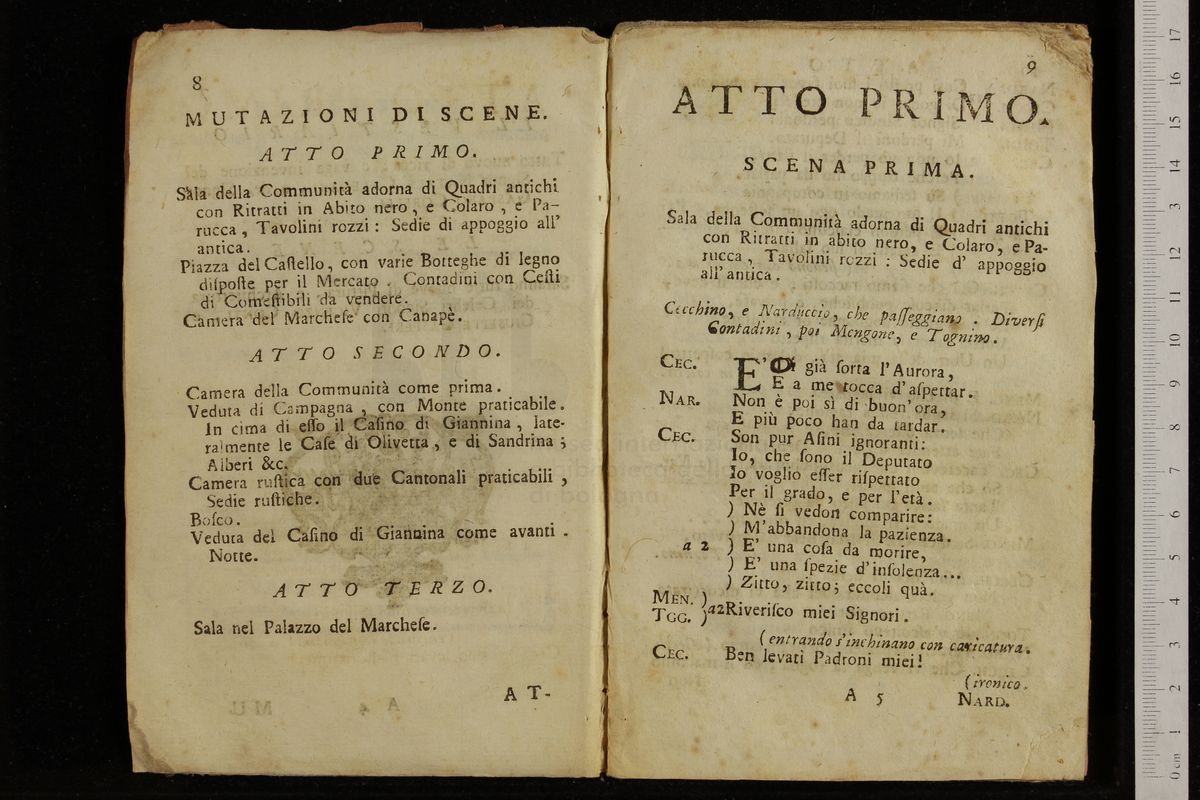 8
MUTAZIONI DI SCENE.
ATTO PRIMO.
Sala della Communità adorna di Quadri antichi
con Ritratti in Abito nero, e Colaro, e Pa-
rucca, Tavolini rozzi: Sedie di appoggio all'
antica.
Piazza del Caſtello, con varie Botteghe di legno
diſpoſte per il Mercato. Contadini con Ceſti
di Comeſtibili da vendere.
Camera del Marcheſe con Canapè.
ATTO SECONDO.
Camera della Communità come prima.
Veduta di Campagna, con Monte praticabile.
In cima di eſſo il Caſino di Giannina, late-
ralmente le Caſe di Olivetta, e di Sandrina;
Alberi &c.
Camera ruſtica con due Cantonali praticabili,
Sedie ruſtiche.
Boſco.
Veduta del Caſino di Giannina come avanti.
Notte.
ATTO TERZO.
Sala nel Palazzo del Marcheſe.
AT-
9
ATTO PRIMO.
SCENA PRIMA.
Sala della Communità adorna di Quadri antichi
con Ritratti in abito nero, e Colaro, e Pa-
rucca, Tavolini rozzi: Sedie d' appoggio
all' antica.
Cecchino, e Narduccio, che paſſeggiano. Diverſi
Contadini, poi Mengone, e Tognino.
CEC. E' già ſorta l'Aurora,
E a me tocca d'aſpettar.
NAR. Non è poi sì di buon' ora,
E più poco han da tardar.
CEC. Son pur Aſini ignoranti:
Io, che ſono il Deputato
Io voglio eſſer riſpettato
Per il grado, e per l'età.
) Nè ſi vedon comparire:
) M'abbandona la pazienza.
a 2 ) E' una coſa da morire,
) E' una ſpezie d'inſolenza...
) Zitto, zitto; eccoli quà.
MEN. )
TGG. ) a2 Riveriſco miei Signori.
(entrando s'inchinano con caricatura.
CEC. Ben levati Padroni miei!
(ironico.
A 5 NARD.